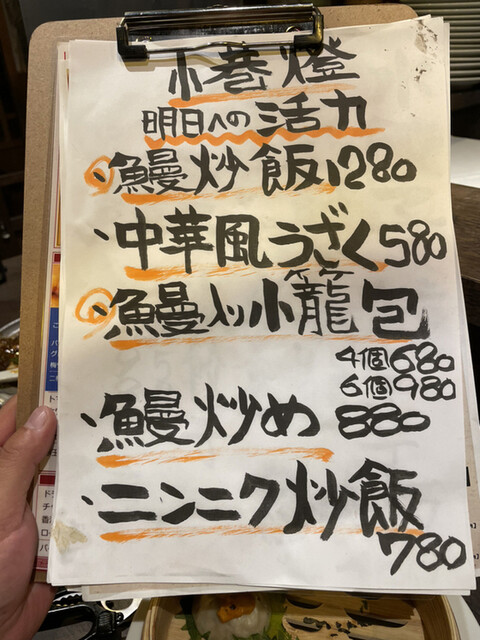 小巻燈
明日への活力
・鰻炒飯1280
・中華風うざく580
・鰻入り小籠包
4個680
6個980
・鰻炒め 880
・ニンニク炒飯
780